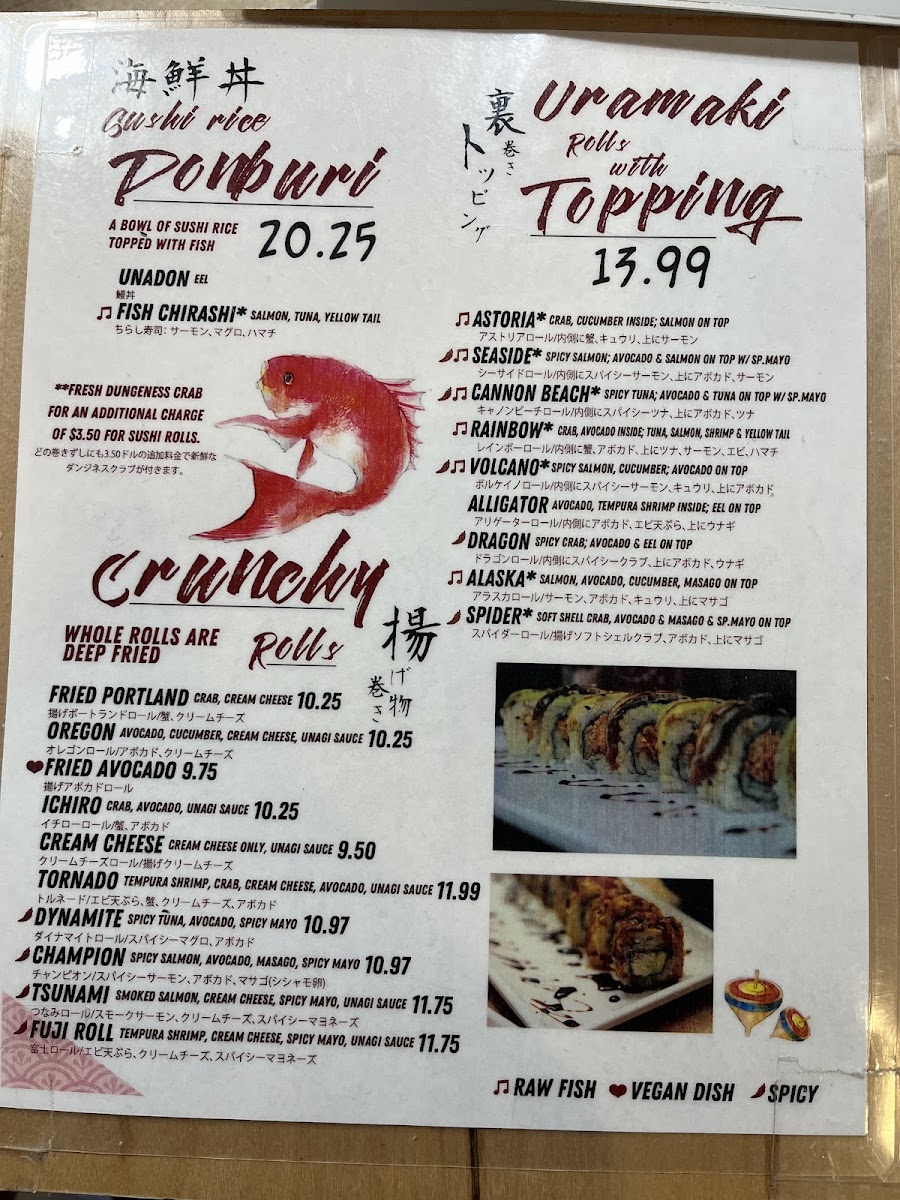 海鮮丼
Sushi rice
Donburi
A BOWL OF SUSHI RICE
TOPPED WITH FISH
20.25
UNADON EEL
鰻丼
♫ FISH CHIRASHI* SALMON, TUNA, YELLOW TAIL
ちらし寿司: サーモン、マグロ、ハマチ
**FRESH DUNGENESS CRAB
FOR AN ADDITIONAL CHARGE
OF $3.50 FOR SUSHI ROLLS.
どの巻きずしにも3.50ドルの追加料金で新鮮な
ダンジネスクラブが付きます。
Crunchy
Rolls
揚げ物
巻き
WHOLE ROLLS ARE
DEEP FRIED
FRIED PORTLAND CRAB, CREAM CHEESE 10.25
揚げポートランドロール/蟹、クリームチーズ
OREGON AVOCADO, CUCUMBER, CREAM CHEESE, UNAGI SAUCE 10.25
オレゴンロール/アボカド、クリームチーズ
FRIED AVOCADO 9.75
揚げアボカドロール
ICHIRO CRAB, AVOCADO, UNAGI SAUCE 10.25
イチローロール/蟹、アボカド
CREAM CHEESE CREAM CHEESE ONLY, UNAGI SAUCE 9.50
クリームチーズロール/揚げクリームチーズ
TORNADO TEMPURA SHRIMP, CRAB, CREAM CHEESE, AVOCADO, UNAGI SAUCE 11.99
トルネード/エビ天ぷら、蟹、クリームチーズ、アボカド
DYNAMITE SPICY TUNA, AVOCADO, SPICY MAYO 10.97
ダイナマイトロール/スパイシーマグロ、アボカド
CHAMPION SPICY SALMON, AVOCADO, MASAGO, SPICY MAYO 10.97
チャンピオン/スパイシーサーモン、アボカド、マサゴ(シシャモ卵)
TSUNAMI SMOKED SALMON, CREAM CHEESE, SPICY MAYO, UNAGI SAUCE 11.75
つなみロール/スモークサーモン、クリームチーズ、スパイシーマヨネーズ
FUJI ROLL TEMPURA SHRIMP, CREAM CHEESE, SPICY MAYO, UNAGI SAUCE 11.75
富士ロール/エビ天ぷら、クリームチーズ、スパイシーマヨネーズ
裏巻き
トッピング
Uramaki
Rolls
with
Topping
13.99
♫ ASTORIA* CRAB, CUCUMBER INSIDE; SALMON ON TOP
アストリアロール/内側に蟹、キュウリ、上にサーモン
♫ SEASIDE* SPICY SALMON; AVOCADO & SALMON ON TOP W/ SP.MAYO
シーサイドロール/内側にスパイシーサーモン、上にアボカド、サーモン
♫ CANNON BEACH* SPICY TUNA; AVOCADO & TUNA ON TOP W/ SP.MAYO
キャノンビーチロール/内側にスパイシーツナ、上にアボカド、ツナ
♫ RAINBOW* CRAB, AVOCADO INSIDE; TUNA, SALMON, SHRIMP & YELLOW TAIL
レインボーロール/内側に蟹、アボカド、上にツナ、サーモン、エビ、ハマチ
♫ VOLCANO* SPICY SALMON, CUCUMBER; AVOCADO ON TOP
ボルケイノロール/内側にスパイシーサーモン、キュウリ、上にアボカド
ALLIGATOR AVOCADO, TEMPURA SHRIMP INSIDE; EEL ON TOP
アリゲーターロール/内側にアボカド、エビ天ぷら、上にウナギ
DRAGON SPICY CRAB; AVOCADO & EEL ON TOP
ドラゴンロール/内側にスパイシークラブ、上にアボカド、ウナギ
♫ ALASKA* SALMON, AVOCADO, CUCUMBER, MASAGO ON TOP
アラスカロール/サーモン、アボカド、キュウリ、上にマサゴ
SPIDER* SOFT SHELL CRAB, AVOCADO & MASAGO & SP.MAYO ON TOP
スパイダーロール/揚げソフトシェルクラブ、アボカド、上にマサゴ
♫ RAW FISH ❤ VEGAN DISH SPICY